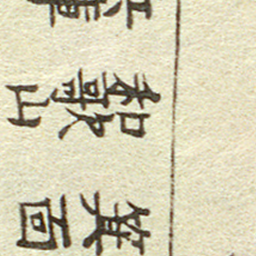 箕面
和歌山